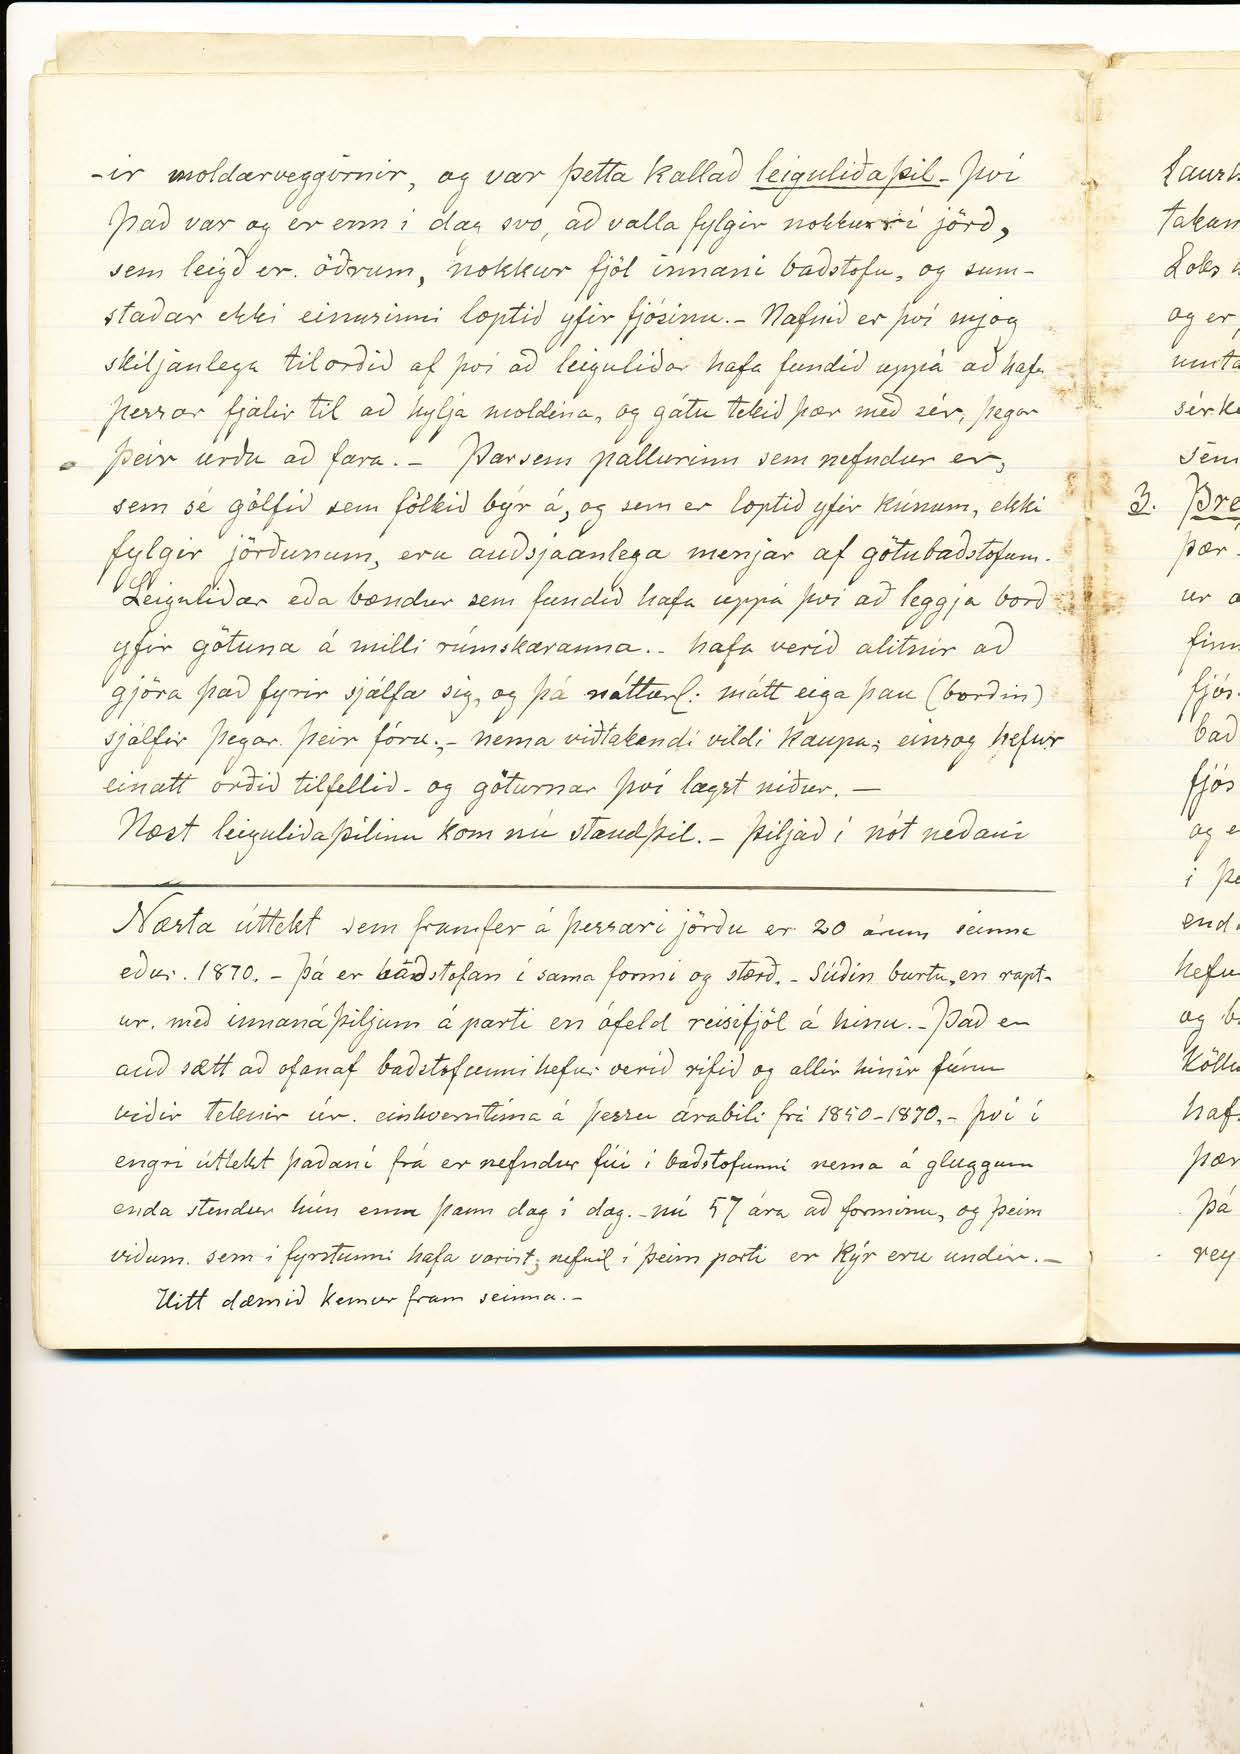 -ir moldarveggirnir, og var þetta kallað leiguliðaþil - því
það var og er enn i dag svo, að valla fylgir nokkurri jörð,
sem leigð er öðrum, nokkur fjöl innani baðstofu, og sum-
staðar ekki einusinni loptið yfir fjósinu. - Nafnið er því mjog
skiljanlega tilorðið af því að leiguliðar hafa fundið uppá að hafa
þessar fjalir til að hylja moldina, og gátu tekið þær með sér, þegar
þeir urðu að fara. - Þarsem pallurinn sem nefndur er,
sem sé gólfið sem fólkið býr á, og sem er loptið yfir kúnum, ekki
fylgir jörðunum, eru auðsjaanlega menjar af götubaðstofum.
Leiguliðar eða bændur sem fundið hafa uppá því að leggja borð
yfir götuna á milli rúmskaranna. - hafa verið alitnir að
gjöra það fyrir sjálfa sig, og þá náttúrl: mátt eiga þau (borðin)
sjálfir þegar þeir fóru; - nema viðtakandi vildi kaupa; einsog hefur
einatt orðið tilfellið - og göturnar því lagst niður. -
Næst leiguliðaþilinu kom nú standþil. - þiljað í nót neðani
Næsta úttekt sem framfer á þessari jörðu er 20 árum seinna
eður. 1870. - Þá er baðstofan i sama formi og stærð. - Súðin burtu, en rapt-
ur. með innanáþiljum á parti en ófeld reisifjöl á hinu. - Það er
auð sætt að ofanaf baðstofunni hefur verið rifið og allir hinir fúnu
viðir teknir úr. einhverntíma á þessu árabili frá 1850-1870, - því í
engri úttekt þaðaní frá er nefndur fúi i baðstofunni nema á gluggum
enda stendur hún enn þann dag i dag. - nú 57 ára að forminu, og þeim
viðum. sem i fyrstunni hafa varist; nefnil i þeim parti er Kýr eru undir. -
Hitt dæmið kemur fram seinna. -
takan
og er
umta
sérke
sem
3. Þre
þær
ur
finn
fjós
bað
fjós
og e
i þe
end
hefu
og b
Köllu
haf
þær
þá
rey